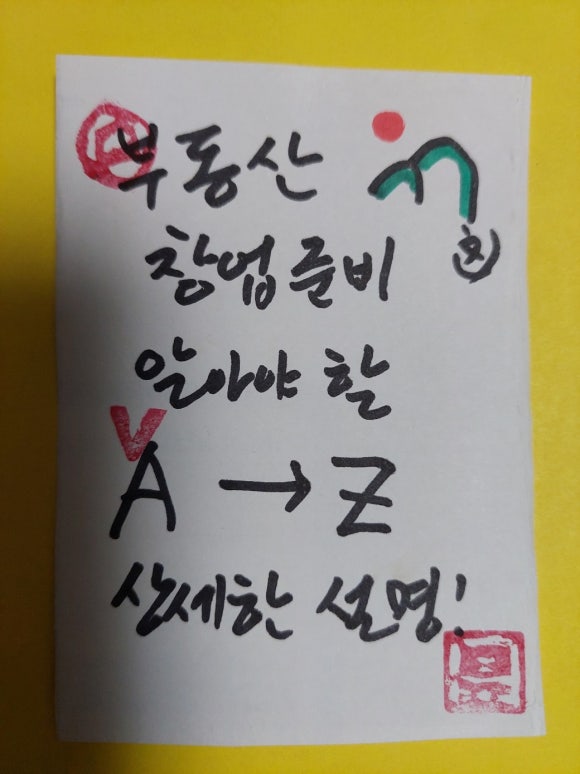 부동산
창업준비
알아야 할
A → Z
상세한 설명!